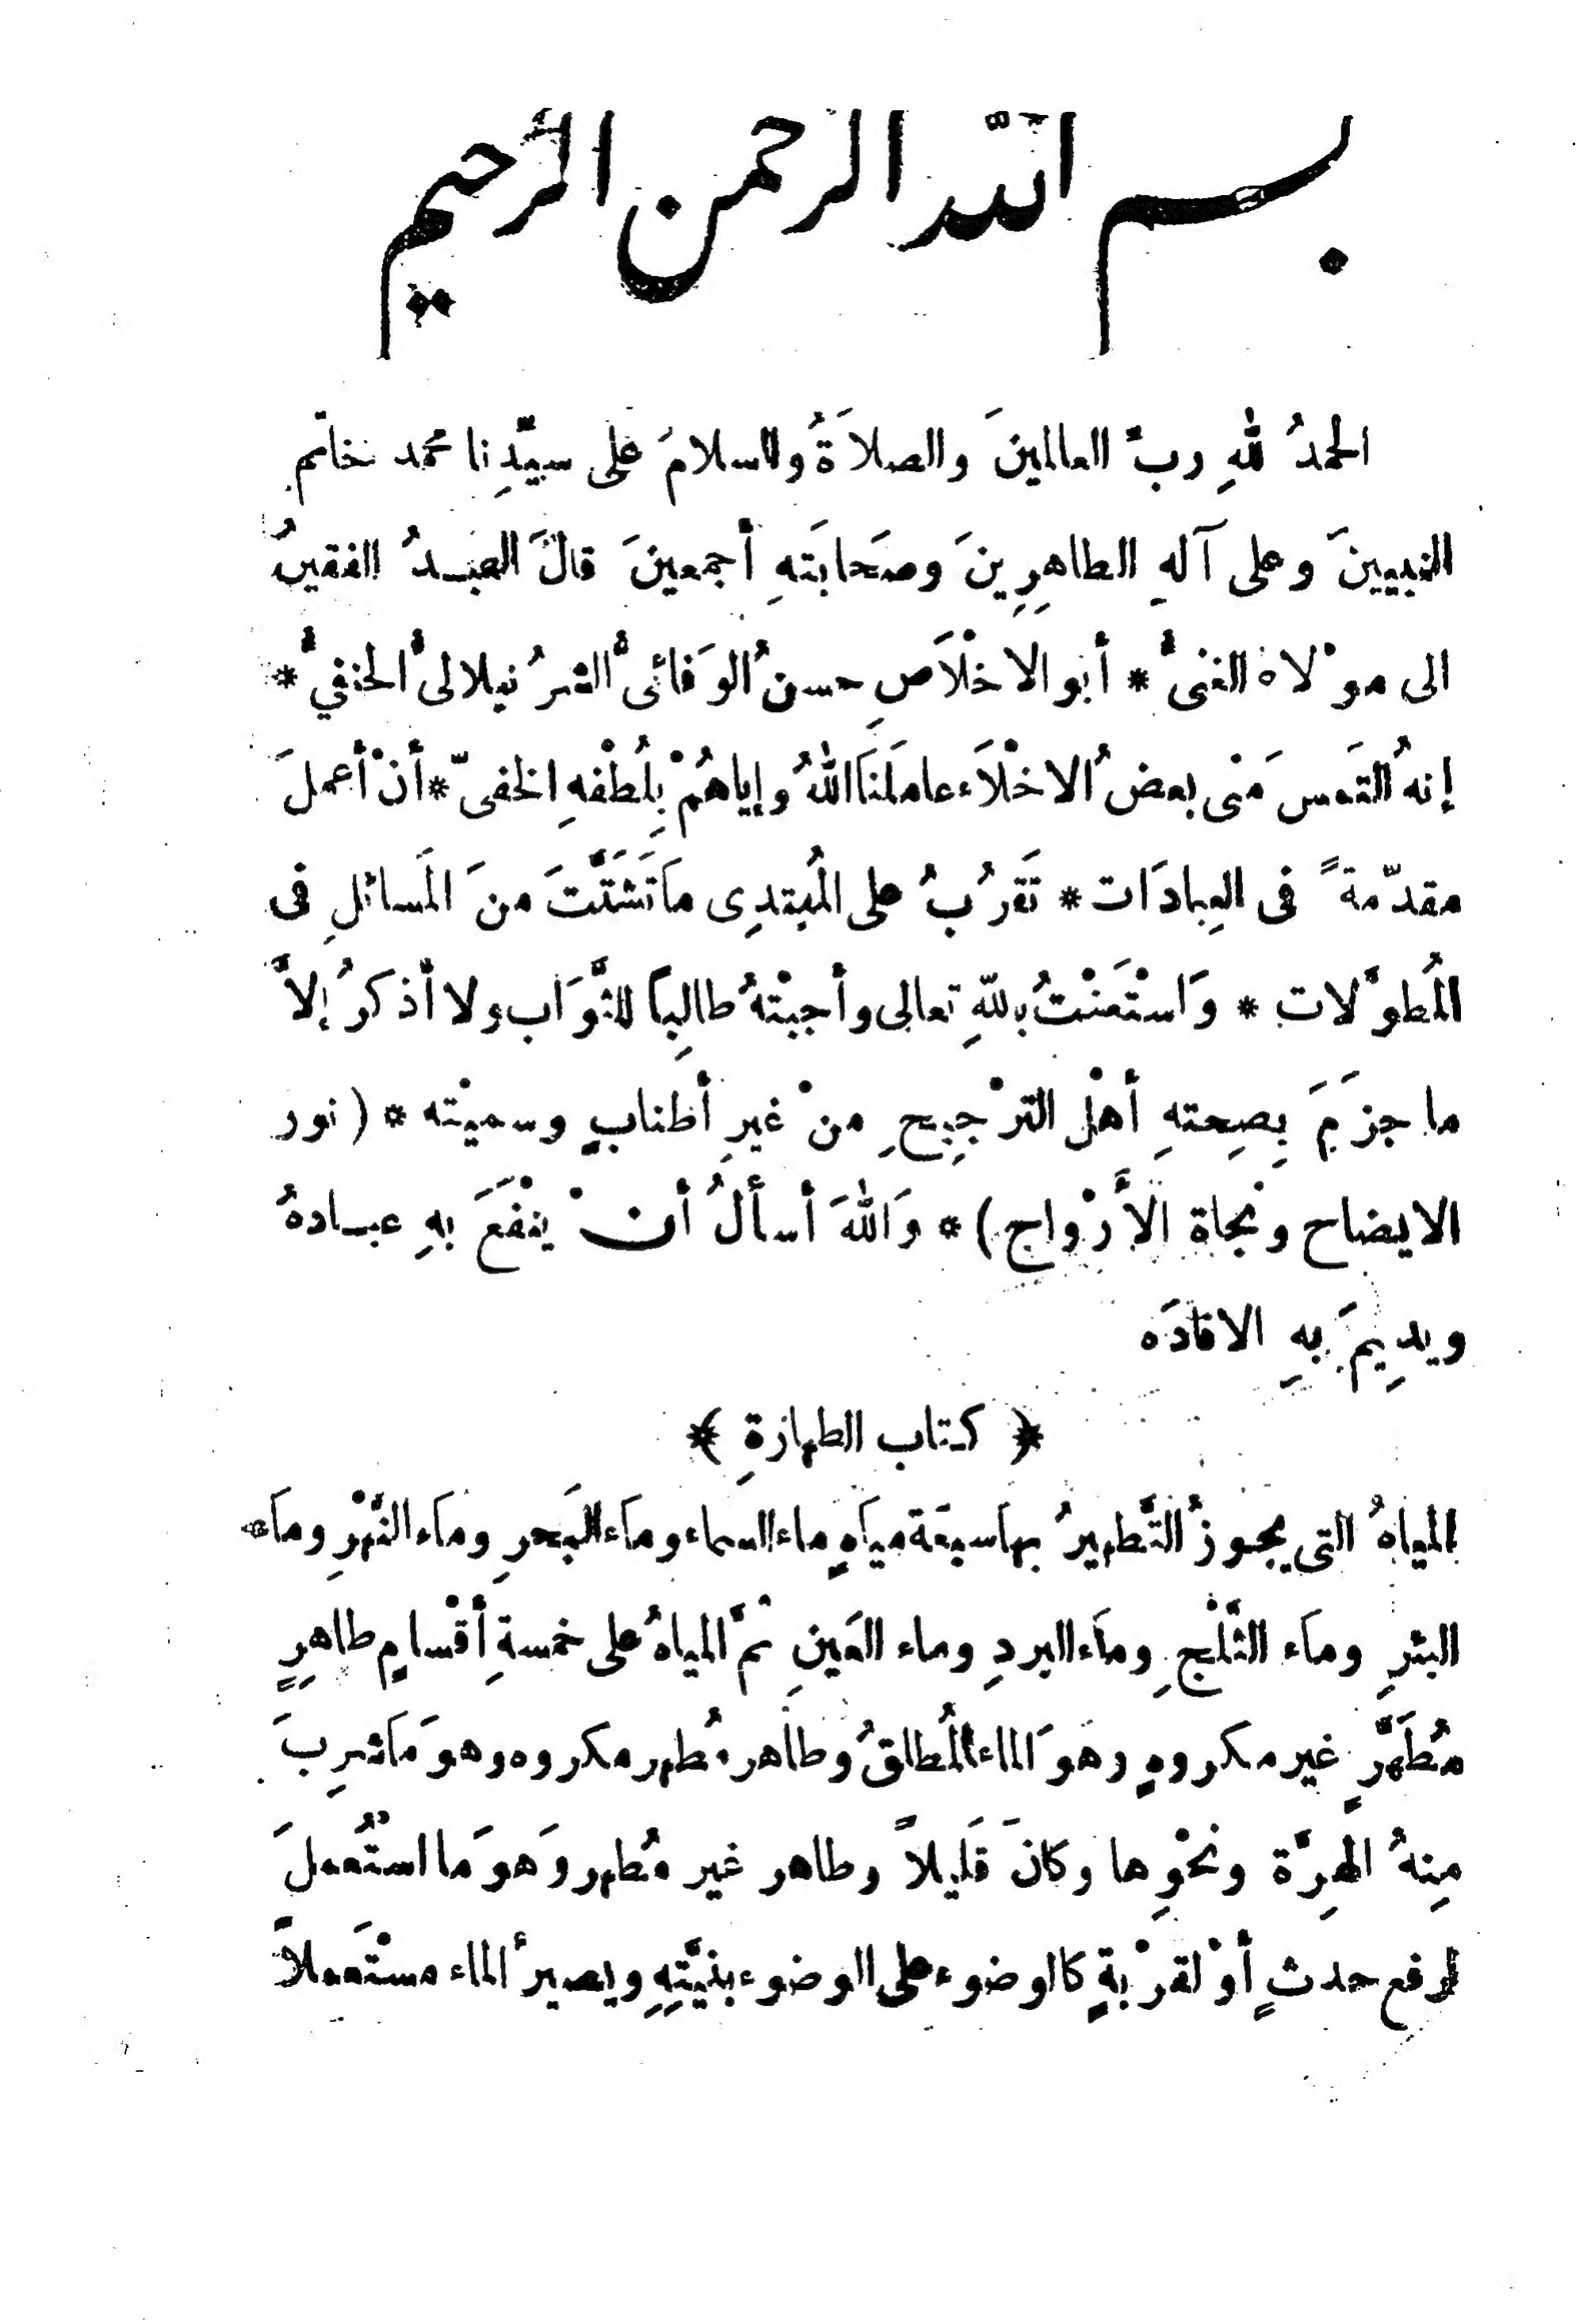 بسم الله الرحمن الرحيم
الحمدُ للهِ ربِّ العالمينَ والصلاَةُ والسلامُ على سيِّدِنا محمد خاتم
النبيينَ وعلى آلهِ الطاهِرِينَ وصَحابَتهِ أجمعينَ قالَ العبدُ الفقيرُ
الى موْلاهُ الغنىُّ * أبو الاخْلاَصِ حسنُ الوَفائىُّ الشرُنبلالىُّ الحنفيُّ *
إنهُ التَمس مَنْى بعضُ الاخْلاَء عامَلنَا اللهُ وإياهُمْ بِلُطْفهِ الخفىّ * أنْ أعملَ
مقدّمةً فى العِبادَات * تَقَرُبُ على المُبتدِى مَا تَشَتَّتَ منَ المَسائلِ فى
المُطوَّلات * وَاسْتَعَنْتُ باللهِ تعالى وأجبْتهُ طالِبًا للثَّوَاب ولا أذكرُ إلاَّ
ما جزَمَ بِصِحتهِ أهْلُ الترْجِيحِ منْ غيرِ أطنابٍ وسميْته * (نور
الايضاح ونجاة الأَرْواج) * وَاللهَ أسألُ أنْ ينْفَعَ بهِ عبادهُ
ويدِيمَ بهِ الافادَه
﴿ كتاب الطهارةِ ﴾
المياهُ التى يجوزُ التَّطهيرُ بها سبعَة مياَهٍ ماء السماء ومَاء البَحرِ وماء النَّهْرِ ومَاء
البئرِ ومَاء الثَّلْجِ ومَاء البردِ وماء العَينِ ثمَّ المياهُ على خمسةِ أقْسامٍ طاهِرٍ
مُطَهِّرٍ غير مكروهٍ وهوَ الماء المُطلقُ وطاهر مُطهر مكروه وهوَ مَا شرِبَ
مِنهُ الهِرَّة ونحْوِها وكانَ قَلِيلاً وطاهر غير مُطهر وَهوَ مَا استُعملَ
لرفع حدثٍ أوْ لقرْبةٍ كالوضوء على الوضوء بنيَّتِهِ ويصيرُ الماء مسْتَعملاً